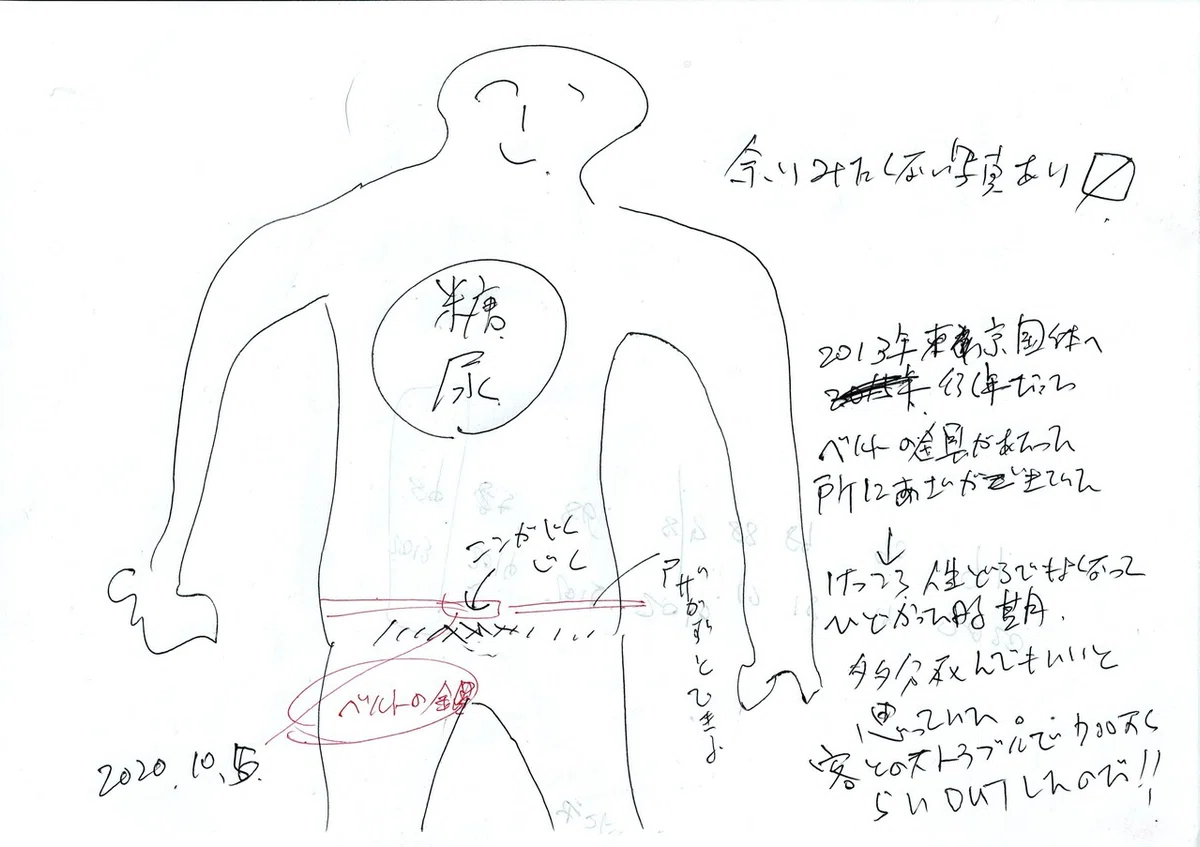 余りみたくない写真あり
糖
尿
2013年東京国体へ
行く年だった
ベルトの金具があたって
所にあざができていた
ここがじく
じく
↓
けっこう人生どうでもよくなって
ひとかってる時期.
多分死んでもいいと
思っていた。
客との大トラブルで
らいOUTしたので!!
ベルトの金具
2020.10.5.